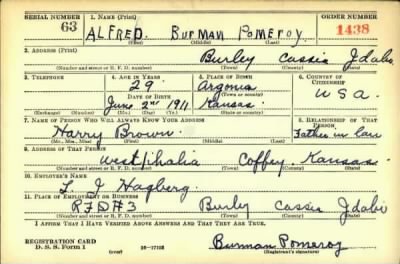 SERIAL NUMBER 1. NAME (Print) ORDER NUMBER
63 ALFRED. BURMAN POMEROY. 1438
(First) (Middle) (Last)
2. ADDRESS (Print)
Burley Cassia Idaho
(Number and street or R. F. D. number) (Town) (County) (State)
3. TELEPHONE 4. AGE IN YEARS 5. PLACE OF BIRTH 6. COUNTRY OF CITIZENSHIP
29 Argonia
DATE OF BIRTH (Town or county)
June 2nd 1911 Kansas. U S A.
(Exchange) (Number) (Mo.) (Day) (Yr.) (State or country)
7. NAME OF PERSON WHO WILL ALWAYS KNOW YOUR ADDRESS 8. RELATIONSHIP OF THAT PERSON
Harry Brown. Father in law
(Mr., Mrs., Miss) (First) (Middle) (Last)
9. ADDRESS OF THAT PERSON
Westphalia Coffey. Kansas.
(Number and street or R. F. D. number) (Town) (County) (State)
10. EMPLOYER'S NAME
L. J Hagberg.
11. PLACE OF EMPLOYMENT OR BUSINESS
R.F.D #3 Burley Cassia Idaho
(Number and street or R. F. D. number) (Town) (County) (State)
I AFFIRM THAT I HAVE VERIFIED ABOVE ANSWERS AND THAT THEY ARE TRUE.
REGISTRATION CARD
D. S. S. Form 1 16—17105 Burman Pomeroy
(Registrant's signature)